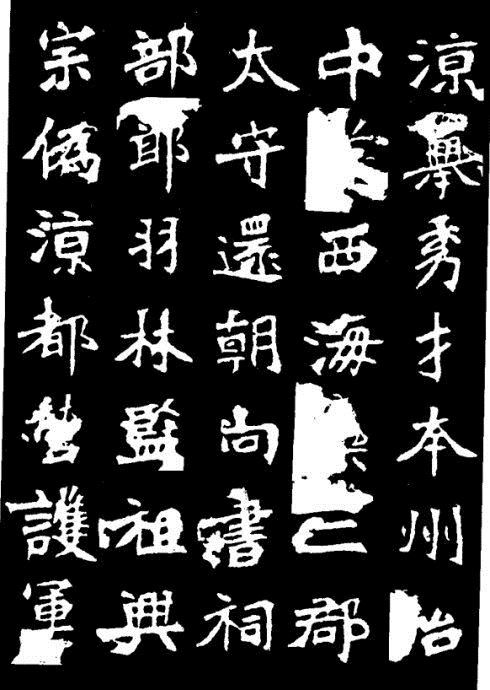 涼舉秀才本州治
中西海二郡
太守還朝尚書祠
部郎羽林監祖興
宗僞涼都營護軍